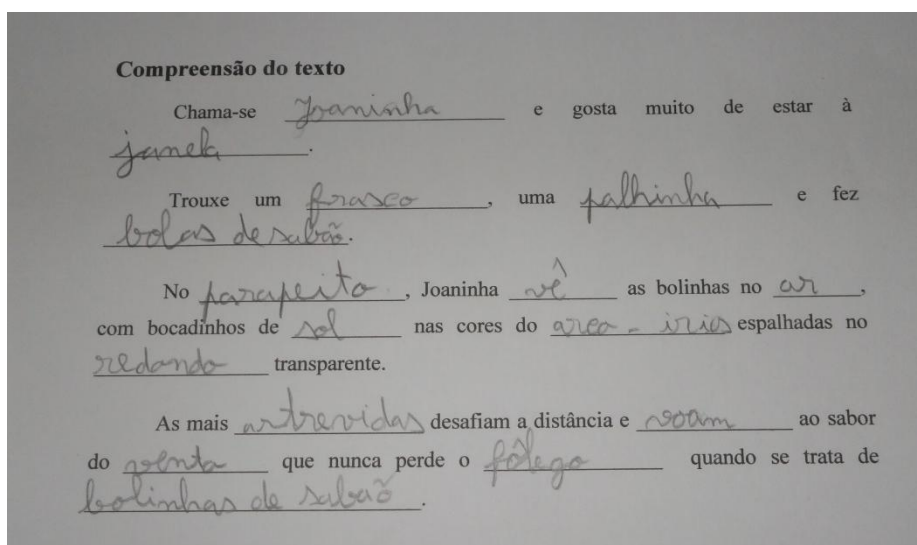 Compreensão do texto
Chama-se Joaninha e gosta muito de estar à
janela.
Trouxe um frasco, uma palhinha e fez
bolas de sabão.
No parapeito, Joaninha vê as bolinhas no ar,
com bocadinhos de sol nas cores do arco-iris espalhadas no
redondo transparente.
As mais artrevidas desafiam a distância e voam ao sabor
do vento que nunca perde o fôlego quando se trata de
bolinhas de sabão.